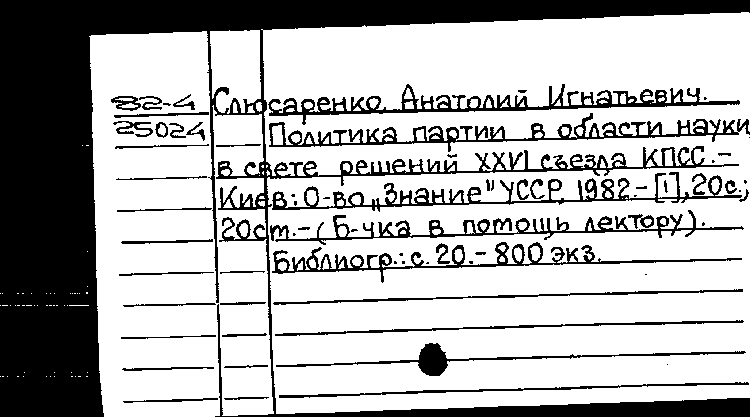 82-4 Слюсаренко, Анатолий Игнатьевич.
25024 Политика партии в области науки
в свете решений XXVI съезда КПСС.-
Киев: О-во „Знание" УССР, 1982.- [1], 20с.;
20см.- ( Б-чка в помощь лектору).
Библиогр.: с. 20.- 800 экз.